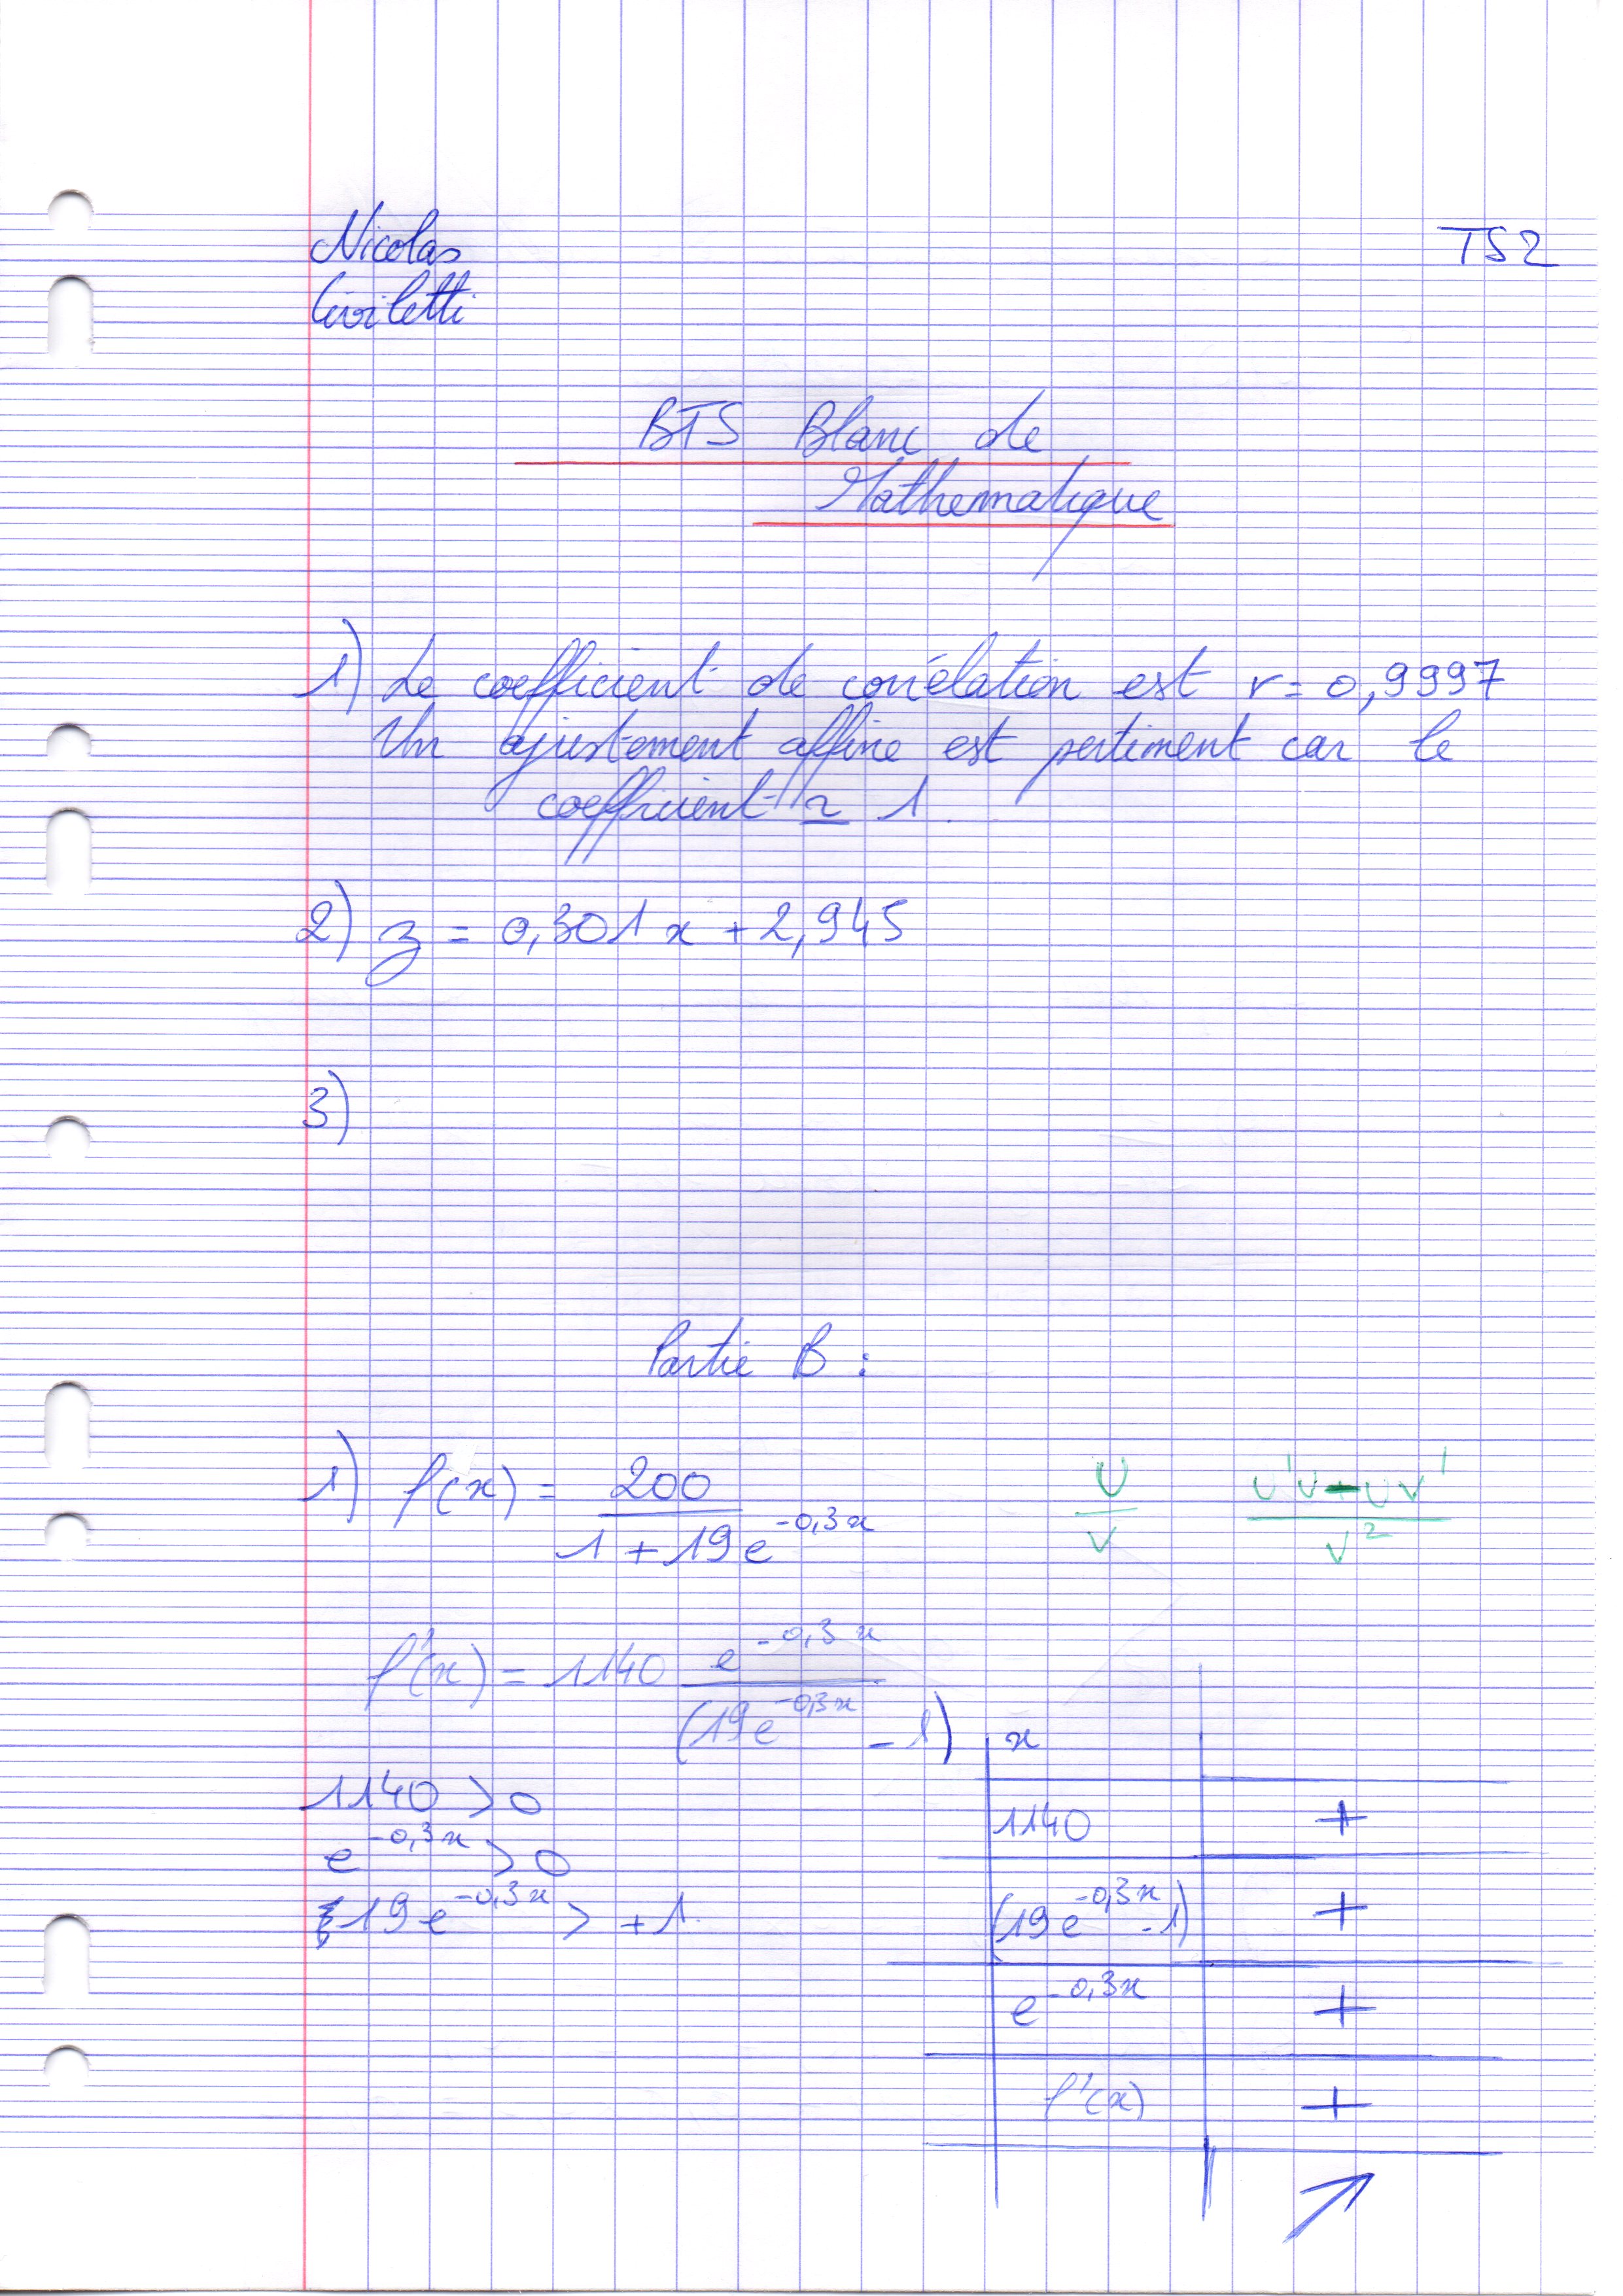 Nicolas
TS2
Civiletti
BTS Blanc de
Mathematique
1) Le coefficient de corrélation est r = 0,9997
Un ajustement affine est pertiment car le
coefficient ≃ 1.
2) z = 0,301x + 2,945
3)
Partie B :
1) f(x) = 200 / (1 + 19e^-0,3x)
U / V
U'V - UV' / V²
f'(x) = 1140 e^-0,3x / (19e^-0,3x - 1)
x
1140 > 0
1140 +
e^-0,3x > 0
19e^-0,3x > +1.
(19e^-0,3x - 1) +
e^-0,3x +
f'(x) +